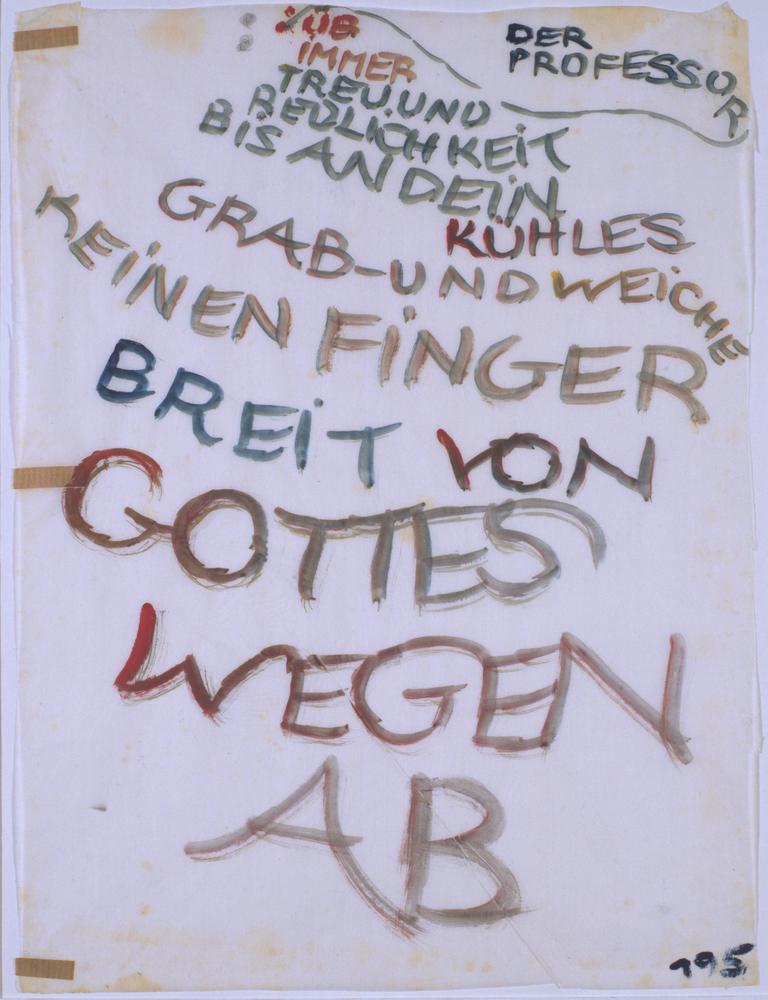 : ÜB
IMMER
TREU UND
REDLICHKEIT
BIS AN DEIN
KÜHLES
GRAB-UND WEICHE
KEINEN FINGER
BREIT VON
GOTTES
WEGEN
AB
DER
PROFESSOR
195